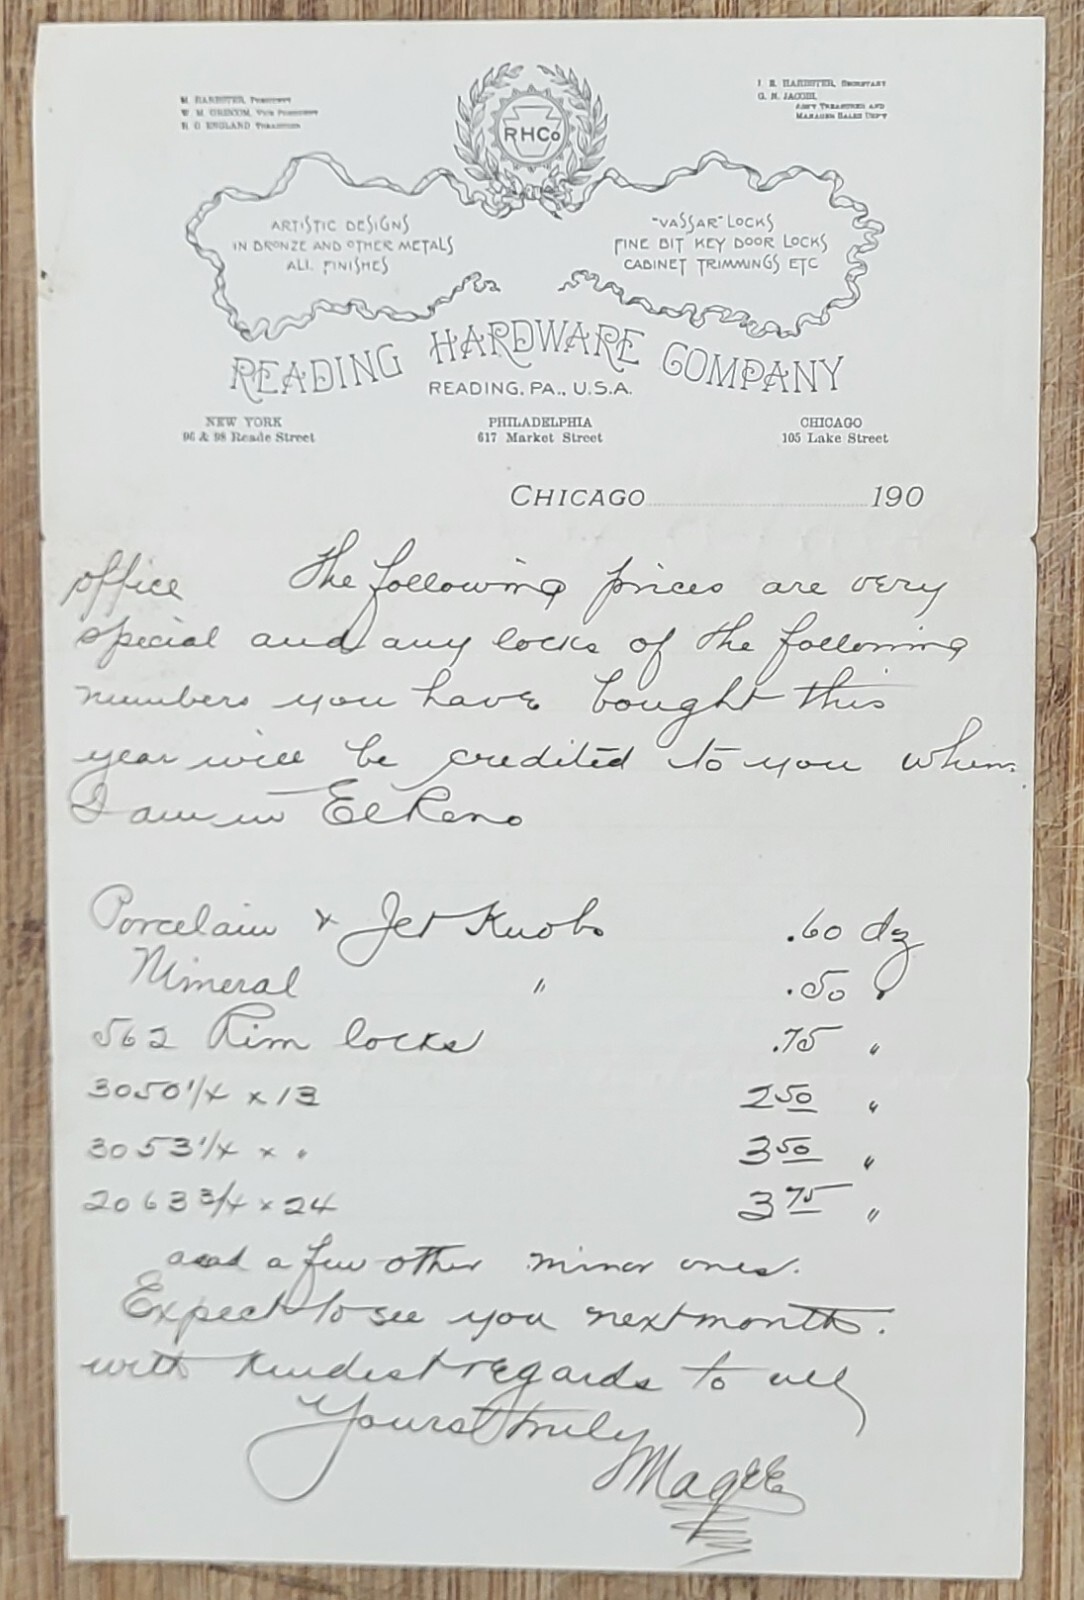 M. HARBSTER, PRESIDENT
W. M. GRISCOM, VICE PRESIDENT
B. O. ENGLAND TREASURER
J. E. HARBSTER, SECRETARY
G. N. JACOBI,
ASS'T TREASURER AND
MANAGER SALES DEP'T
RHCo
ARTISTIC DESIGNS
IN BRONZE AND OTHER METALS
ALL FINISHES
"VASSAR" LOCKS
FINE BIT KEY DOOR LOCKS
CABINET TRIMMINGS ETC
READING HARDWARE COMPANY
READING, PA., U.S.A.
NEW YORK
96 & 98 Reade Street
PHILADELPHIA
617 Market Street
CHICAGO
105 Lake Street
CHICAGO 190
office The following prices are very
special and any locks of the following
numbers you have bought this
year will be credited to you when
I am in El Reno
Porcelain & Jet Knobs .60 dz
Mineral " .50 "
562 Rim locks .75 "
3050 1/4 x 13 2 50 "
3053 1/4 x " 3 50 "
2063 3/4 x 24 3 75 "
and a few other minor ones.
Expect to see you next month.
with kindest regards to all
Yours truly
Magee